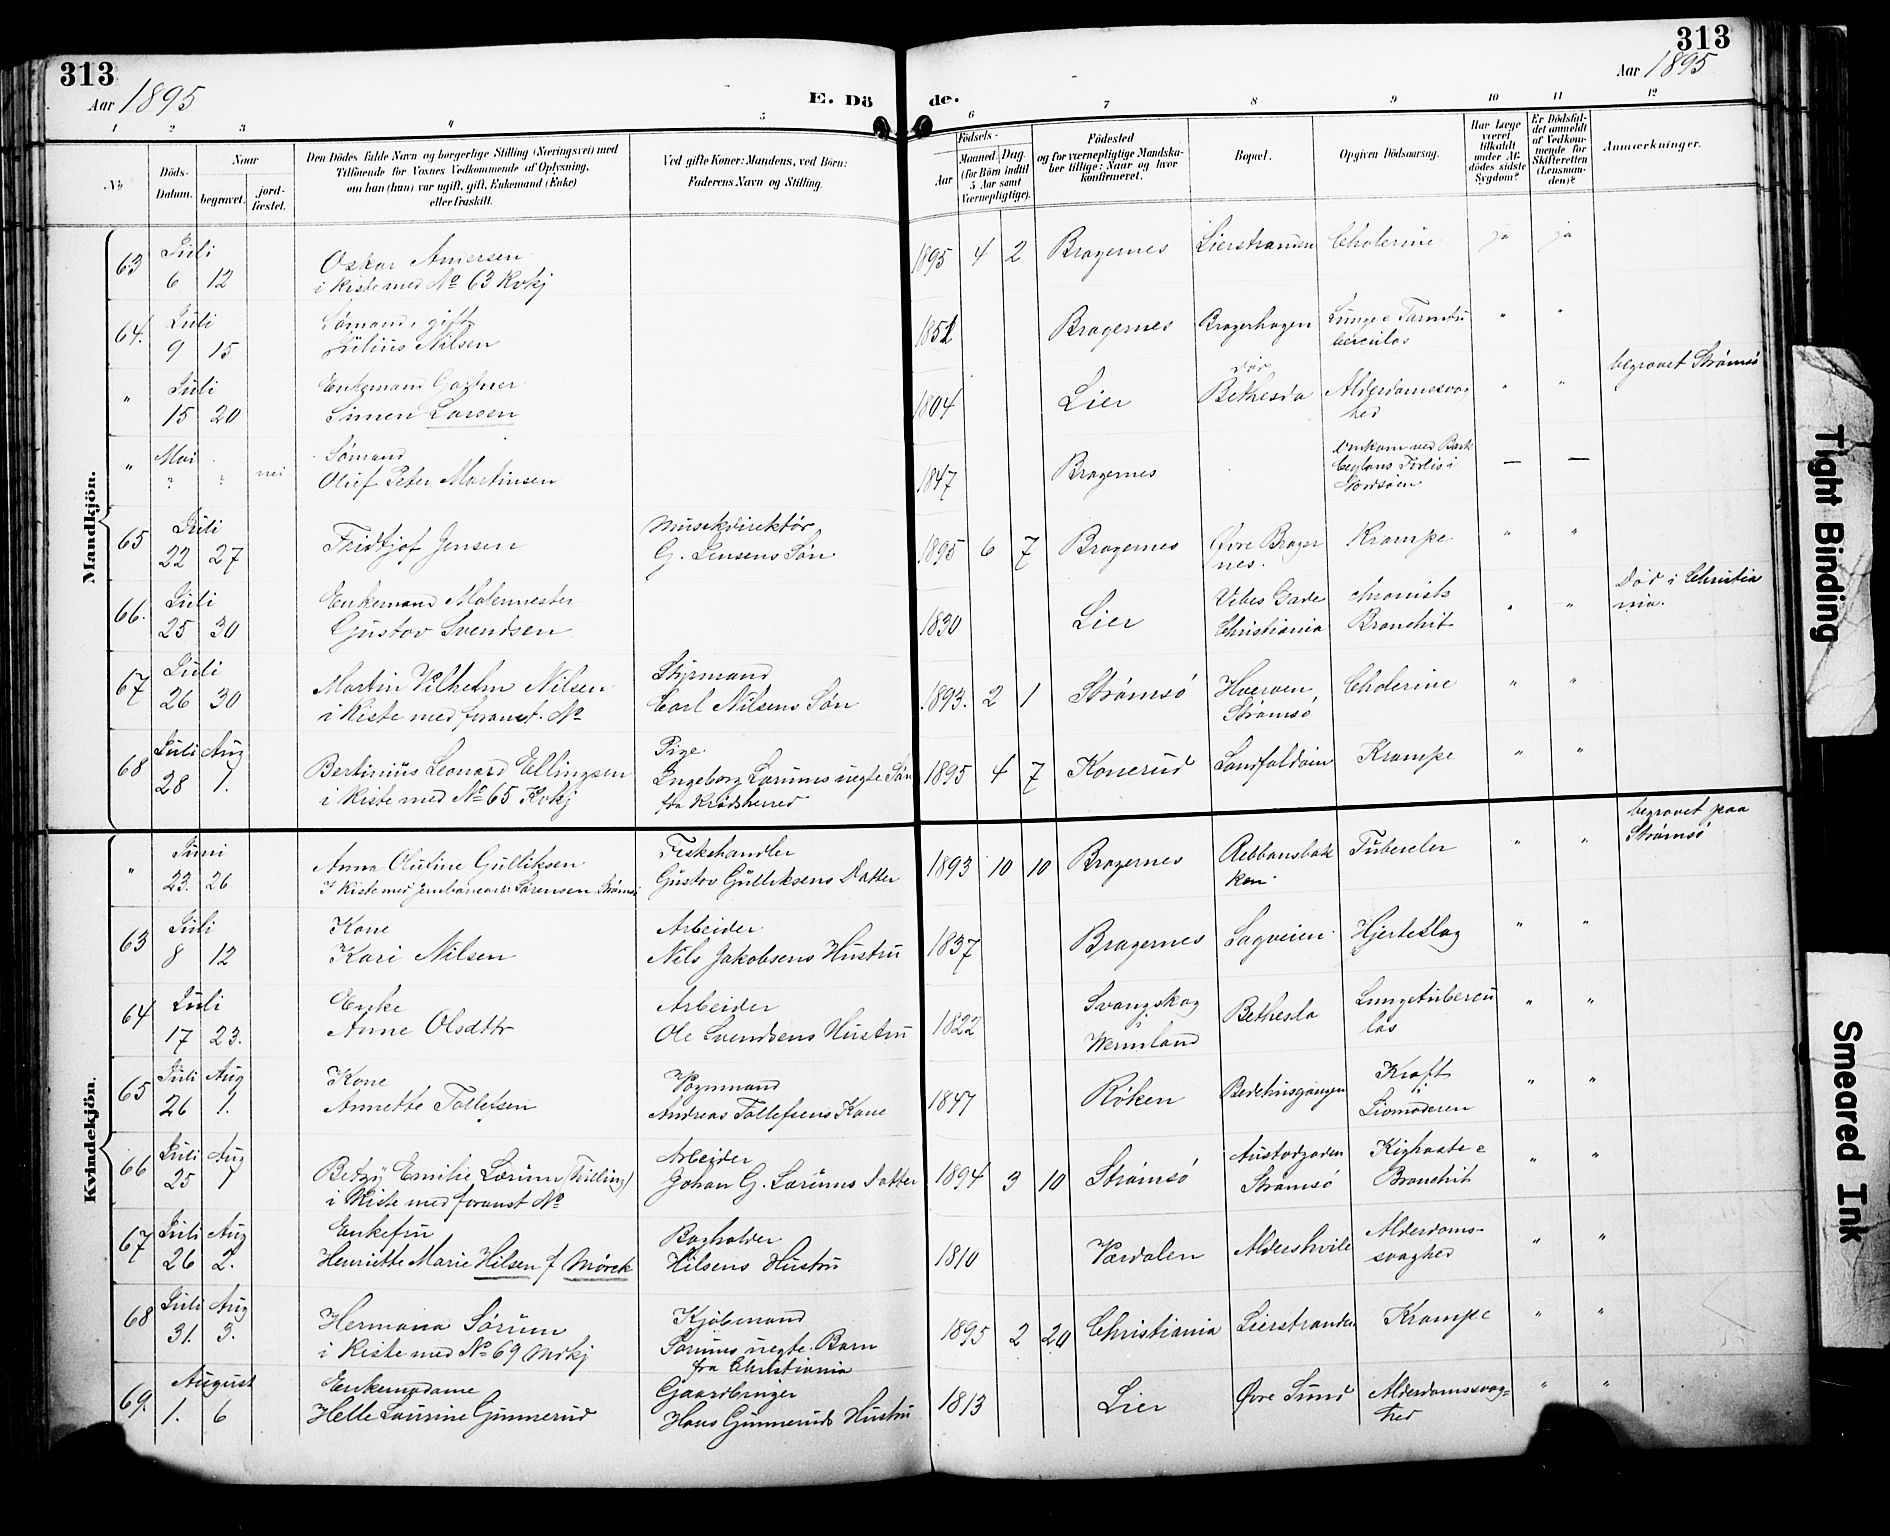 313
Aar 1895
E. Dö
de.
313
Aar 1895
1 2 3 4 5 6 7 8 9 10 11 12
No
Döds-Datum.
Naar
begravet.
jord-fæstet.
Den Dödes fulde Navn og borgerlige Stilling (Næringsvei) med
Tilföiende for Voxnes Vedkommende af Oplysning,
om han (hun) var ugift, gift, Enkemand (Enke)
eller fraskilt.
Ved gifte Koner: Mandens, ved Börn:
Faderens Navn og Stilling.
Födsels-
Aar
Maaned. Dag.
(for Börn indtil
5 Aar samt
Værnepligtige).
Födested
og for værnepligtige Mandska-
ber tillige: Naar og hvor
konfirmeret.
Bopæl.
Opgiven Dödsaarsag.
Har Læge
været
tilkaldt
under Af-
dödes sidste
Sygdom?
Er Dödsfal-
det anmeldt
af Vedkom-
mende for
Skifteretten
(Lensman-
den)?
Anmærkninger.
Mandkjön.
63 Juli 6 12 Oskar Andersen
i Kiste med No 63 Kvkj
1895 4 2 Bragernes Lierstranden Cholerine ja ja
64. Juli 9 15 Sømand, gift
Julius Nilsen
1851 Bragernes Bragerhagen Lunge e Tarmtu
berculos " "
" Juli 15 20 Enkemand Gartner
Simen Larsen
1804 Lier død
Bethesda Alderdomssvag
hed " " begravet Strømsø
" Mai ? ? nei Sømand
Oluf Peter Martinsen
1847 Bragernes Omkom ved Bark
Ceylons Forlis i
Nordsøen — —
65 Juli 22 27 Fridtjof Jensen
Musikdirektør
G. Jensens Søn
1895 6 7 Bragernes Øvre Brager
nes. Krampe " "
66. Juli 25 30 Enkemand Malermester
Gustav Svendsen
1830 Lier Vibes Gade
Christiania chronisk
Bronchit " " Død i Christia
nia.
67 Juli 26 30 Martin Vilhelm Nilsen
i Kiste med foranst. No
Styrmand
Carl Nilsens Søn
1893. 2 1 Strømsø Hverven,
Strømsø Cholerine " "
68 Juli 28 Aug 1. Bertinius Leonard Ellingsen
i Kiste med No 65 Kvkj
Pige
Ingeborg Lorums uegte Søn
fra Krødsherred
1895 4 7 Konerud Landfaldøien Krampe " "
Kvindekjön.
" Juni 23. 26 Anna Olutine Gulliksen
I Kiste med Jernbanearb. Sørensen Strømsø
Fiskehandler
Gustav Gulliksens Datter
1893 10 10 Bragernes Rebbansbak
ken. Tubercler " " begravet paa
Strømsø
63 Juli 8 12 Kone
Kari Nilsen
Arbeider
Nils Jakobsens Hustru
1837 Bragernes Sagveien Hjerteslag " "
64 Juli 17 23. Enke
Anne Olsdttr
Arbeider
Ole Svendsens Hustru
1822 Svangskog
i
Wermland Bethesda Lungetubercu
los " "
65 Juli 26 Aug 1. Kone
Annette Tollefsen
Vognmand
Andreas Tollefsens Kone
1847 Røken Bedehusgangen Kræft
i
Livmoderen " "
66 Juli 25 Aug 1 Betzy Emilie Lorum (Tvilling)
i Kiste med foranst No
Arbeider
Johan G. Lorums Datter
1894 3 10 Strømsø Austadgaden
Strømsø Kighoste e
Bronchit " "
67 Juli 26 Aug 2. Enkefru
Henriette Marie Hilsen f Mørck
Bogholder
Hilsens Hustru
1810 Værdalen Aldershvile Alderdoms-
svaghed " "
68 Juli 31. Aug 3. Hermana Sørum
i Kiste med No 69 Mdkj
Kjøbmand
Sørums uegte Barn
fra Christiania
1895 2 20 Christiania Lierstranden Krampe " "
69. August 1. 6 Enkemadame
Helle Laurine Gunnerud
Gaardbruger
Hans Gunneruds Hustru
1813 Lier Øvre Sund Alderdomssvag-
hed " "
Tight Binding
Smeared Ink